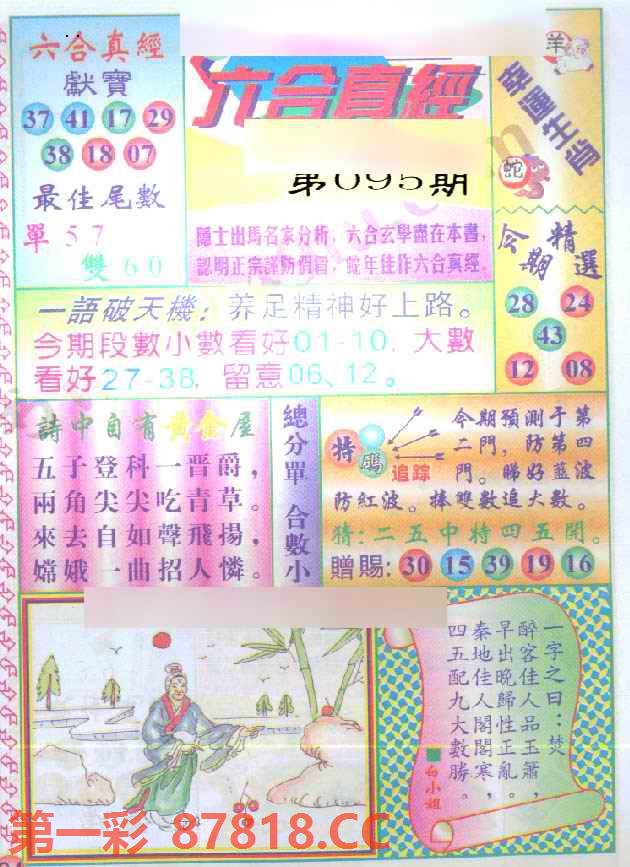 六合真經
獻寶
37 41 17 29
38 18 07
最佳尾數
單 5 7
雙 6 0
六合真經
第095期
隱士出馬名家分析，六合玄學盡在本書，
認明正宗謹防假冒，蛇年佳作六合真經。
羊
幸運生肖
蛇
今期精選
28 24
43
12 08
一語破天機：养足精神好上路。
今期段數小數看好01-10，大數
看好27-38，留意06、12。
詩中自有黃金屋
五子登科一晋爵，
兩角尖尖吃青草。
來去自如聲飛揚，
嫦娥一曲招人憐。
總分單 合數小
特碼
追踪
今期預測于第
二門，防第四
門。睇好藍波
防紅波。捧雙數追大數。
猜：二五中特四五開。
贈賜：30 15 39 19 16
一字之曰：焚
醉客佳人品玉簫，
早出晚歸性正亂。
秦地佳人閣閣寒，
四五配九大數勝。
白小姐
第一彩 87818.CC